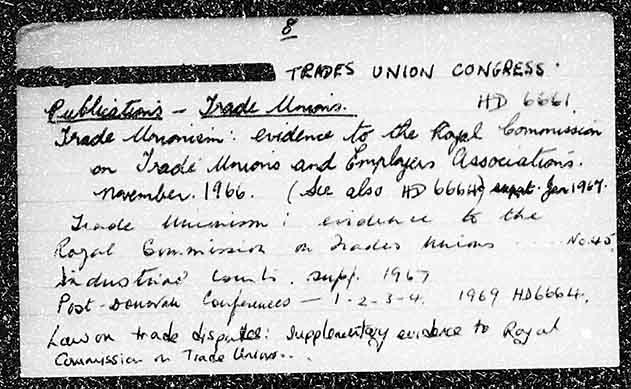 8
TRADES UNION CONGRESS.
Publications — Trade Unions. HD 6661.
Trade Unionism: evidence to the Royal Commission
on Trade Unions and Employers Associations.
November. 1966. (See also HD 6664) Jan 1967.
Trade Unionism: evidence to the
Royal Commission on Trades Unions ... No. 45.
Industrial Courts. supp. 1967
Post-Donovan Conferences — 1-2-3-4. 1969 HD6664.
Law on trade disputes: Supplementary evidence to Royal
Commission on Trade Unions..